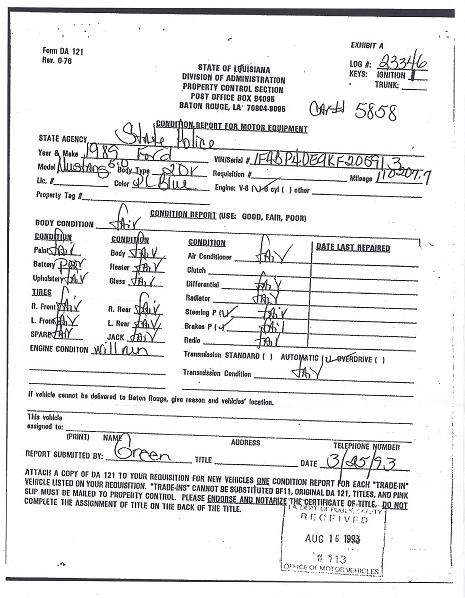 Form DA 121
Rev. 6-76
EXHIBIT A
LOG #: 23346
KEYS: IGNITION
TRUNK:
STATE OF LOUISIANA
DIVISION OF ADMINISTRATION
PROPERTY CONTROL SECTION
POST OFFICE BOX 94095
BATON ROUGE, LA 70804-9095
5858
CONDITION REPORT FOR MOTOR EQUIPMENT
STATE AGENCY State Police
Year & Make 1989 Ford VIN/Serial #
Model Mustang 5.0 Body Type 2Dr Requisition # Mileage
Lic. # Color Blue Engine: V-8 (✓) 6 cyl ( ) other
Property Tag #
CONDITION REPORT (USE: GOOD, FAIR, POOR)
BODY CONDITION fair
CONDITION CONDITION CONDITION DATE LAST REPAIRED
Paint fair Body fair Air Conditioner fair
Battery poor Heater fair Clutch
Upholstery fair Glass fair Differential fair
TIRES Radiator fair
R. Front fair R. Rear fair Steering P (✓) fair
L. Front fair L. Rear fair Brakes P (✓) fair
SPARE fair JACK fair Radio fair
ENGINE CONDITON will run Transmission STANDARD ( ) AUTOMATIC (✓) OVERDRIVE ( )
Transmission Condition fair
If vehicle cannot be delivered to Baton Rouge, give reason and vehicles' location.
This vehicle
assigned to:
(PRINT) NAME ADDRESS TELEPHONE NUMBER
REPORT SUBMITTED BY: Green TITLE DATE 3/25/93
ATTACH A COPY OF DA 121 TO YOUR REQUISITION FOR NEW VEHICLES ONE CONDITION REPORT FOR EACH "TRADE-IN"
VEHICLE LISTED ON YOUR REQUISITION. "TRADE-INS" CANNOT BE SUBSTITUTED BF11, ORIGINAL DA 121, TITLES, AND PINK
SLIP MUST BE MAILED TO PROPERTY CONTROL. PLEASE ENDORSE AND NOTARIZE THE CERTIFICATE OF TITLE. DO NOT
COMPLETE THE ASSIGNMENT OF TITLE ON THE BACK OF THE TITLE.
LA. DEPT. OF PUBLIC SAFETY
RECEIVED
AUG 16 1993
# 113
OFFICE OF MOTOR VEHICLES